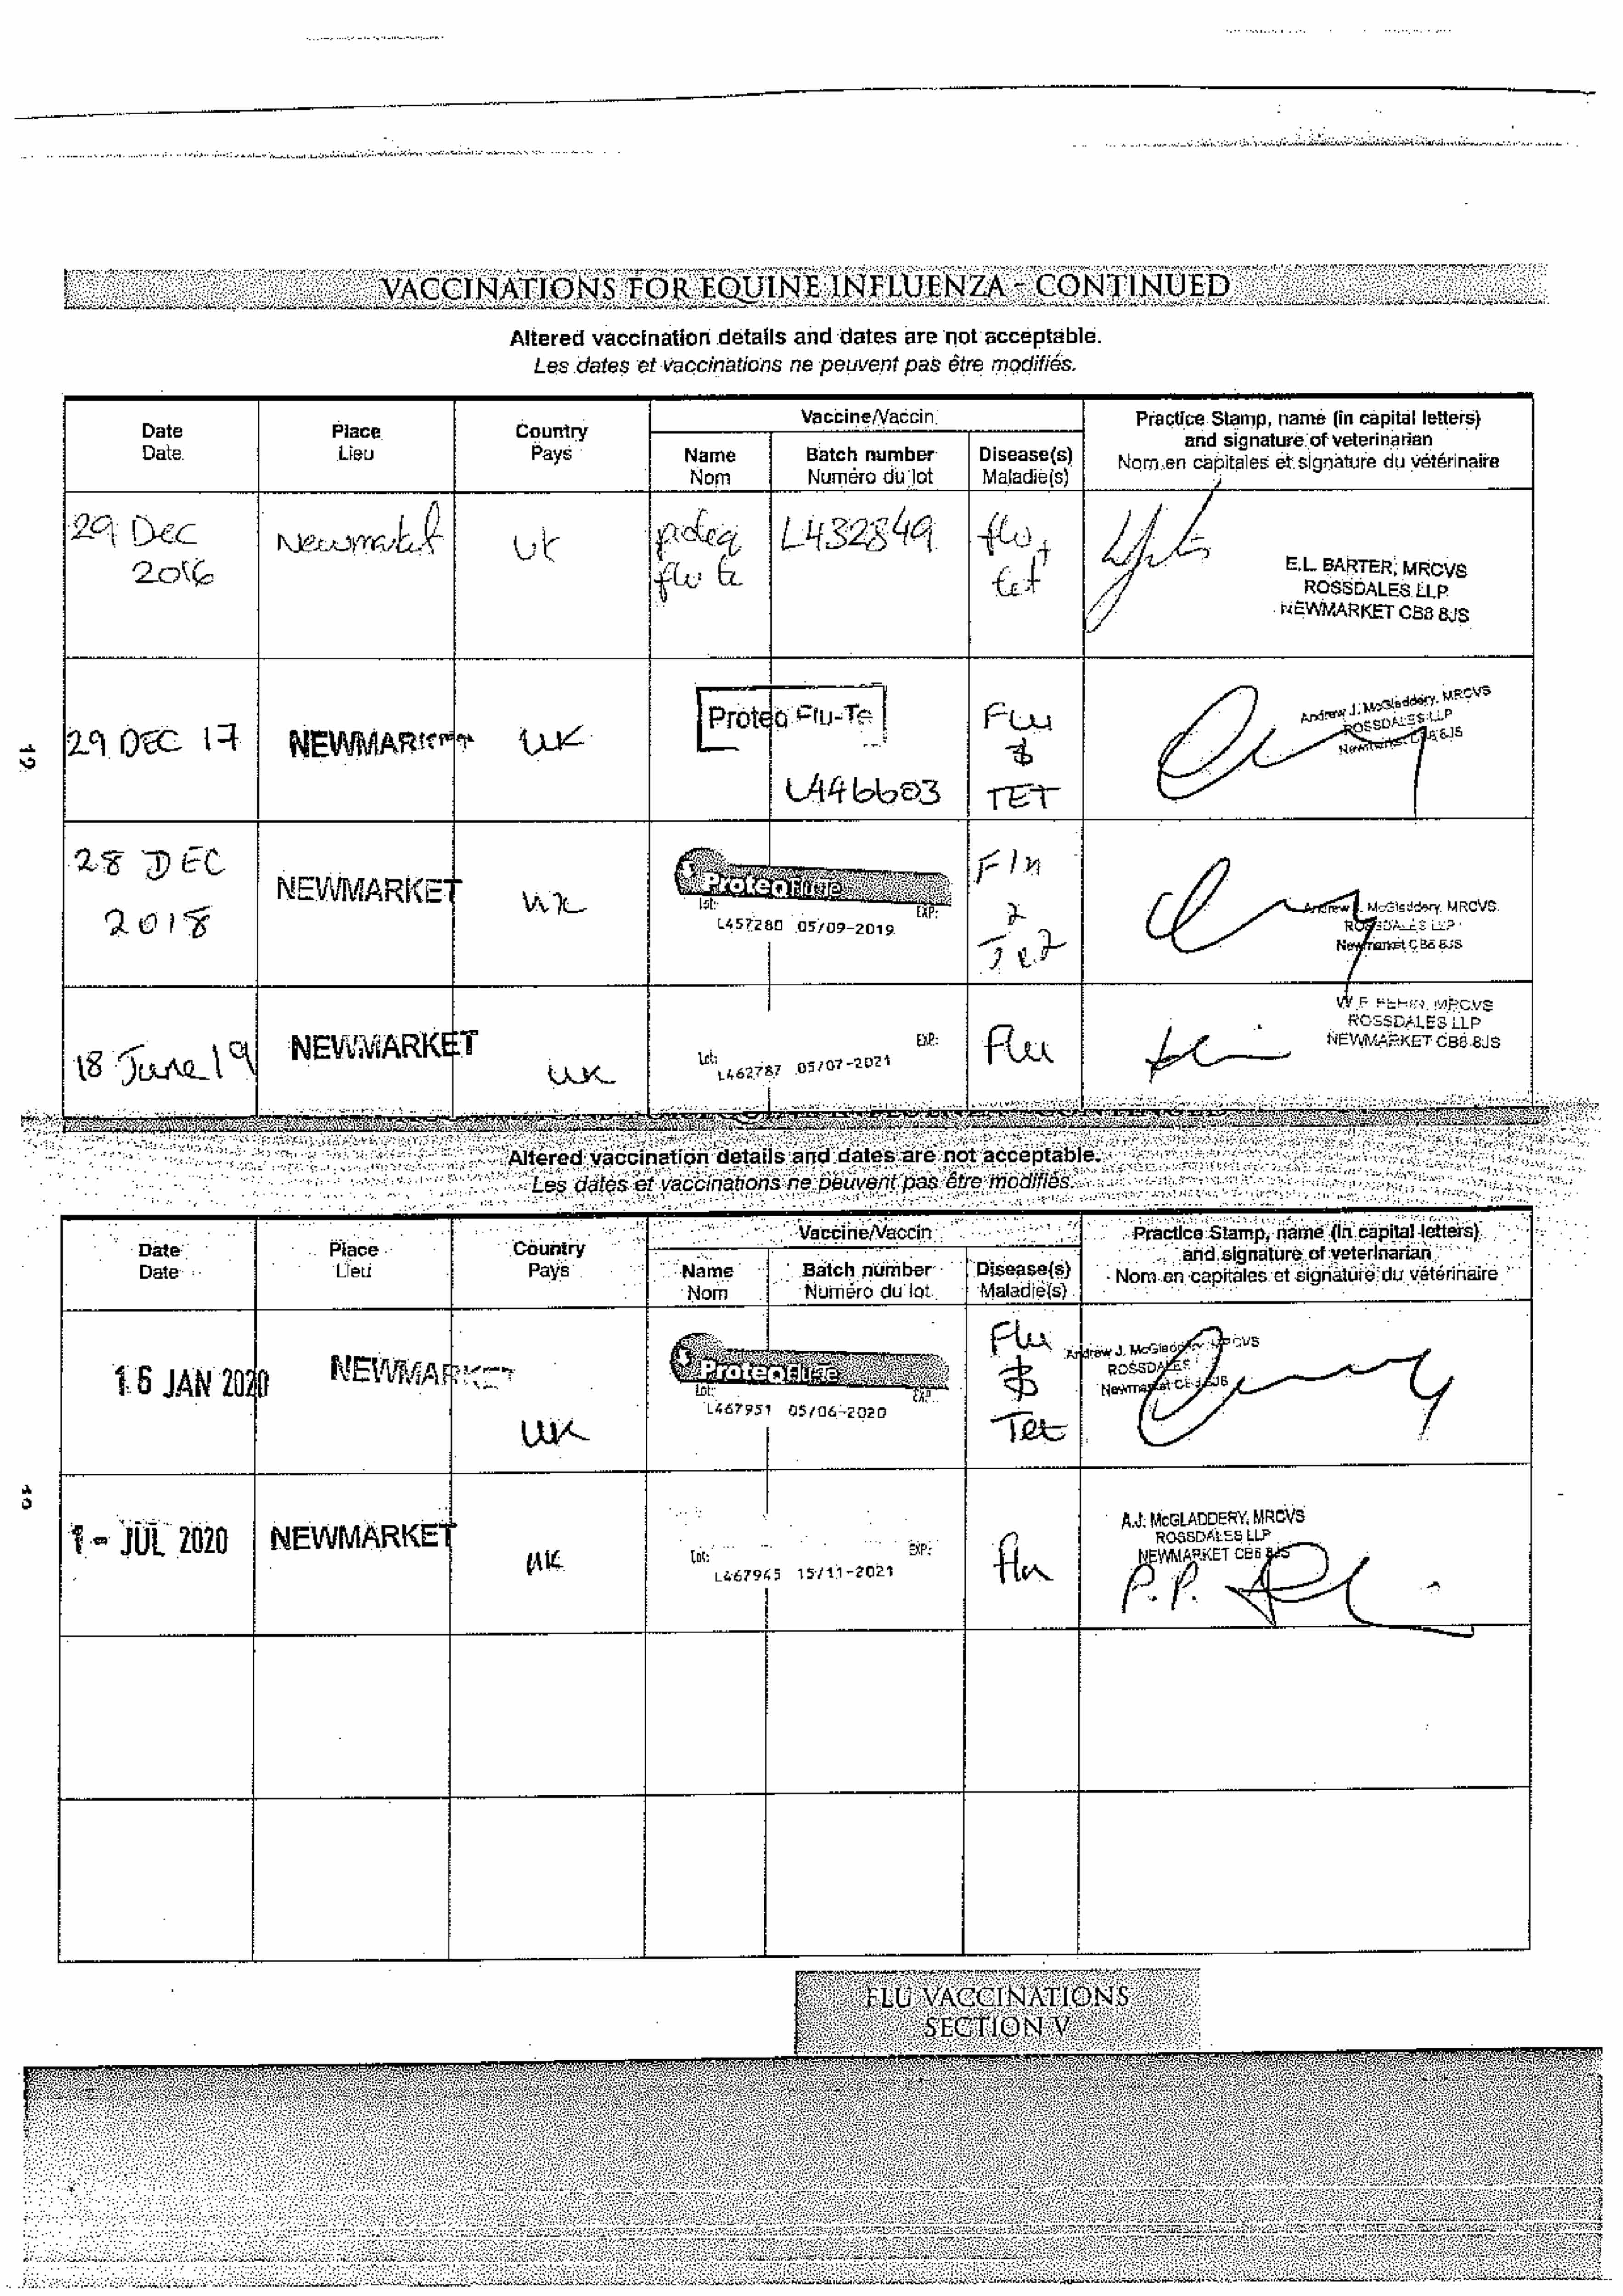 VACCINATIONS FOR EQUINE INFLUENZA - CONTINUED
Altered vaccination details and dates are not acceptable.
Les dates et vaccinations ne peuvent pas être modifiés.
Date Place Country Vaccine/Vaccin Practice Stamp, name (in capital letters)
Date Lieu Pays Name Batch number Disease(s) and signature of veterinarian
Nom Numéro du lot Maladie(s) Nom en capitales et signature du vétérinaire
29 Dec Newmarket UK proteq L432849 flu +
2016 flu te tet
E.L. BARTER, MRCVS
ROSSDALES LLP
NEWMARKET CB8 8JS
12
29 DEC 17 NEWMARKET UK Proteq Flu-Te Flu
&
L446603 TET
Andrew J. McGladdery, MRCVS
ROSSDALES LLP
Newmarket CB8 8JS
28 DEC NEWMARKET UK ProteqFlu-Te Flu
2018 Lot: EXP: &
L457280 05/09-2019 Tet
Andrew J. McGladdery, MRCVS
ROSSDALES LLP
Newmarket CB8 8JS
18 June 19 NEWMARKET UK Lot: EXP: Flu
L462787 05/07-2021
MRCVS
ROSSDALES LLP
NEWMARKET CB8 8JS
Altered vaccination details and dates are not acceptable.
Les dates et vaccinations ne peuvent pas être modifiés.
Date Place Country Vaccine/Vaccin Practice Stamp, name (in capital letters)
Date Lieu Pays Name Batch number Disease(s) and signature of veterinarian
Nom Numéro du lot Maladie(s) Nom en capitales et signature du vétérinaire
16 JAN 2020 NEWMARKET UK ProteqFlu-Te Flu
Lot: EXP: &
L467951 05/06-2020 Tet
Andrew J. McGladdery, MRCVS
ROSSDALES
Newmarket CB8 8JS
1 - JUL 2020 NEWMARKET UK Lot: EXP: flu
L467945 15/11-2021
A.J. McGLADDERY, MRCVS
ROSSDALES LLP
NEWMARKET CB8 8JS
P.P.
FLU VACCINATIONS
SECTION V